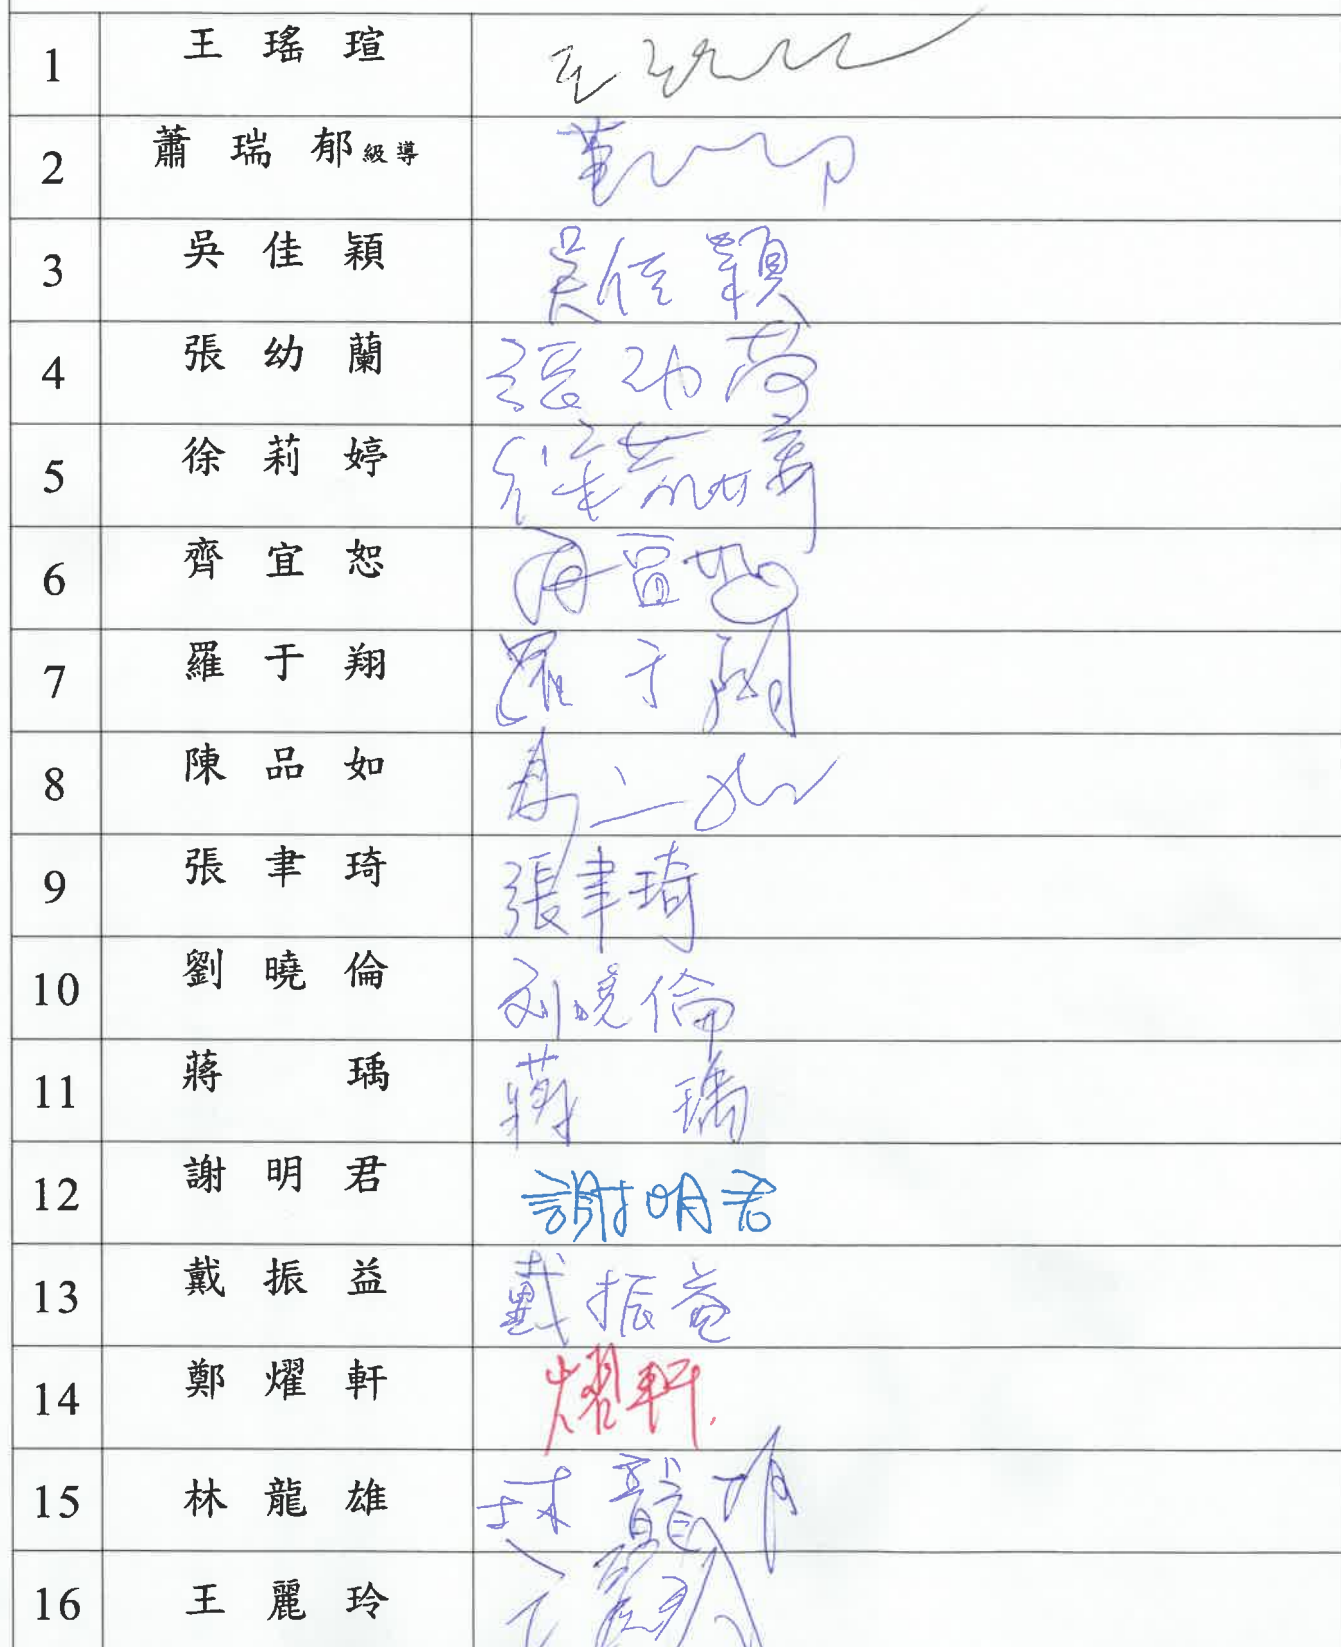 1 王瑤瑄
2 蕭瑞郁級導
3 吳佳穎 吳佳穎
4 張幼蘭 張幼
5 徐莉婷
6 齊宜恕
7 羅于翔 羅于翔
8 陳品如
9 張聿琦 張聿琦
10 劉曉倫 刘曉倫
11 蔣瑀 蔣瑀
12 謝明君 謝明君
13 戴振益 戴振益
14 鄭燿軒 燿軒.
15 林龍雄 林龍雄
16 王麗玲